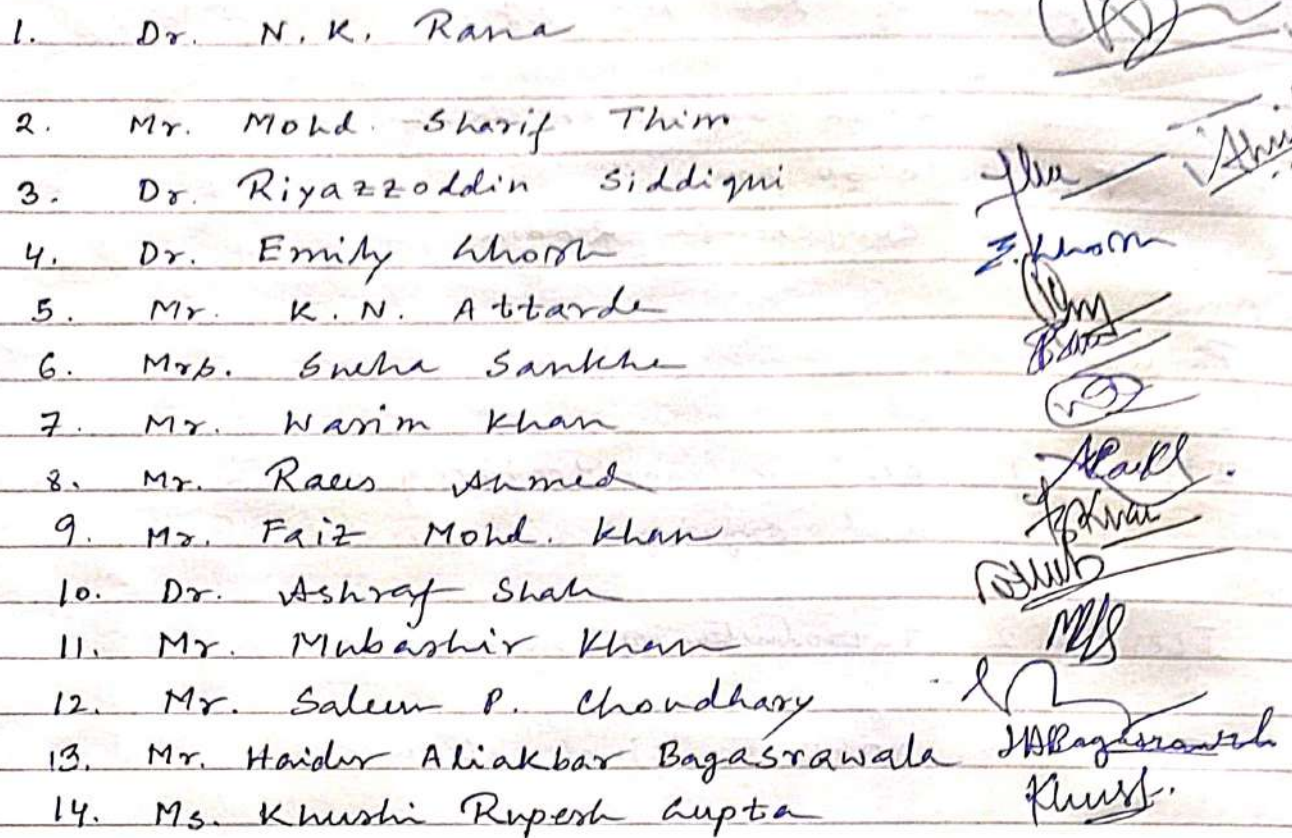 1. Dr. N. K. Rana
2. Mr. Mohd. Sharif Thim
3. Dr. Riyazzoddin Siddiqui
4. Dr. Emily Ghosh E. Ghosh
5. Mr. K. N. Attarde
6. Mrs. Sneha Sankhe
7. Mr. Wasim Khan
8. Mr. Raees Ahmed
9. Mr. Faiz Mohd. Khan
10. Dr. Ashraf Shah
11. Mr. Mubashir Khan
12. Mr. Saleem P. Choudhary
13. Mr. Haider Aliakbar Bagasrawala HABagasrawala
14. Ms. Khushi Rupesh Gupta